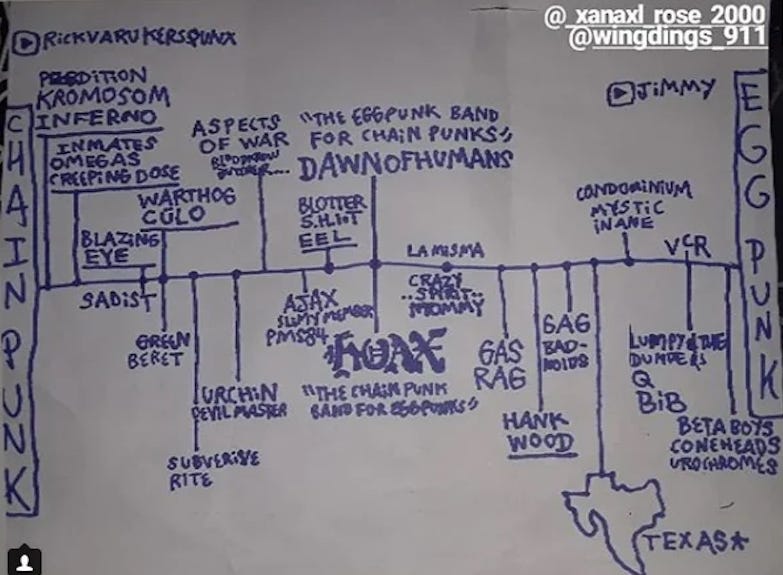 @_xanaxl_rose_2000
@wingdings_911
RICKVARUKERSPUNX
JIMMY
CHAIN PUNK
EGG PUNK
PERDITION
KROMOSOM
INFERNO
INMATES
OMEGAS
CREEPING DOSE
WARTHOG
CULO
BLAZING
EYE
SADIST
GREEN
BERET
SUBVERSIVE
RITE
URCHIN
DEVIL MASTER
ASPECTS
OF WAR
BLOTTER
S.H.I.T
EEL
AJAX
SLIMY MEMBER
PMS84
"THE EGGPUNK BAND
FOR CHAIN PUNKS"
DAWN OF HUMANS
HOAX
"THE CHAIN PUNK
BAND FOR EGGPUNKS"
LA MISMA
CRAZY
..SPIRIT..
MOMMY
GAS
RAG
HANK
WOOD
GAG
BAD-
NOIDS
TEXAS*
CONDOMINIUM
MYSTIC
INANE
VCR
LUMPY & THE
DUMPERS
Q
BIB
BETA BOYS
CONEHEADS
UROCHROMES